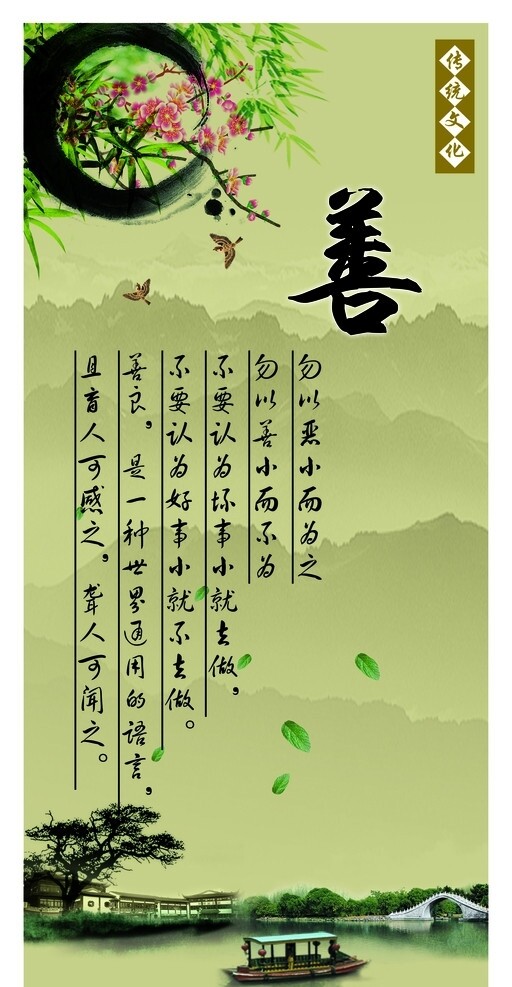 传统文化
善
勿以恶小而为之
勿以善小而不为
不要认为坏事小就去做，
不要认为好事小就不去做。
善良，是一种世界通用的语言，
且盲人可感之，聋人可闻之。